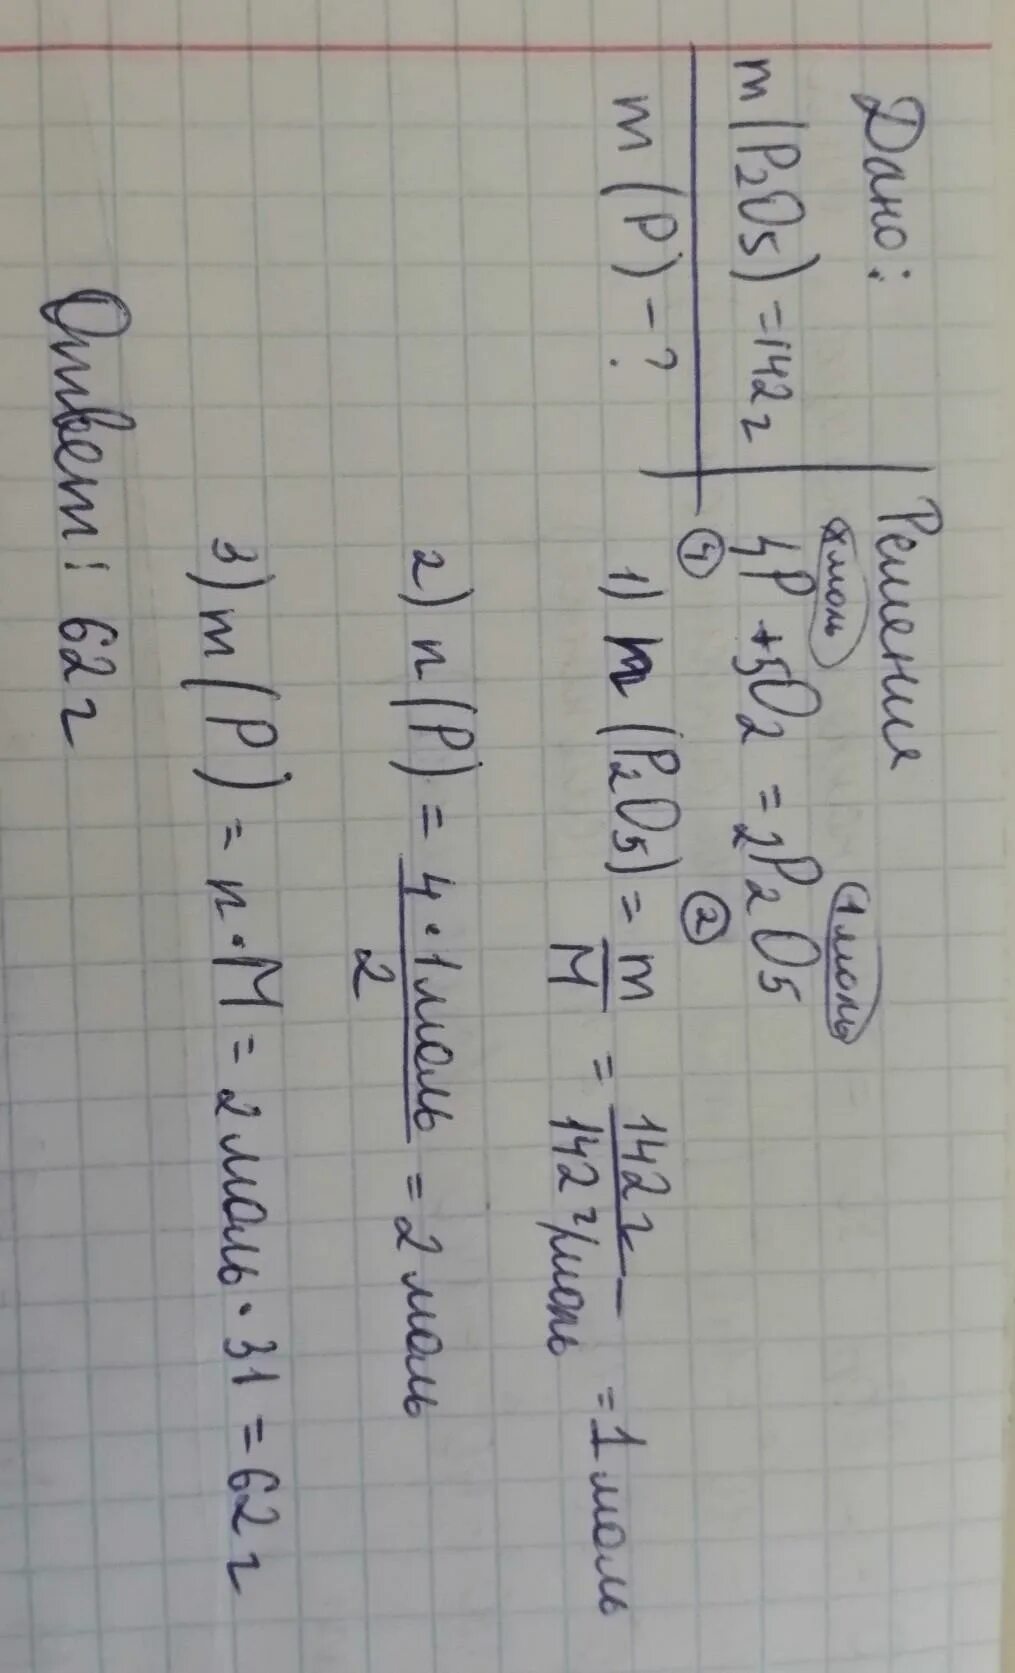 Дано:
m(P₂O₅)=142г
m(P)-?
Решение
xмоль 1моль
4P + 5O₂ = 2P₂O₅
4 2
1) n(P₂O₅) = m/M = 142г/142г/моль = 1моль
2) n(P) = 4·1моль/2 = 2моль
3) m(P) = n·M = 2моль·31 = 62г
Ответ: 62г